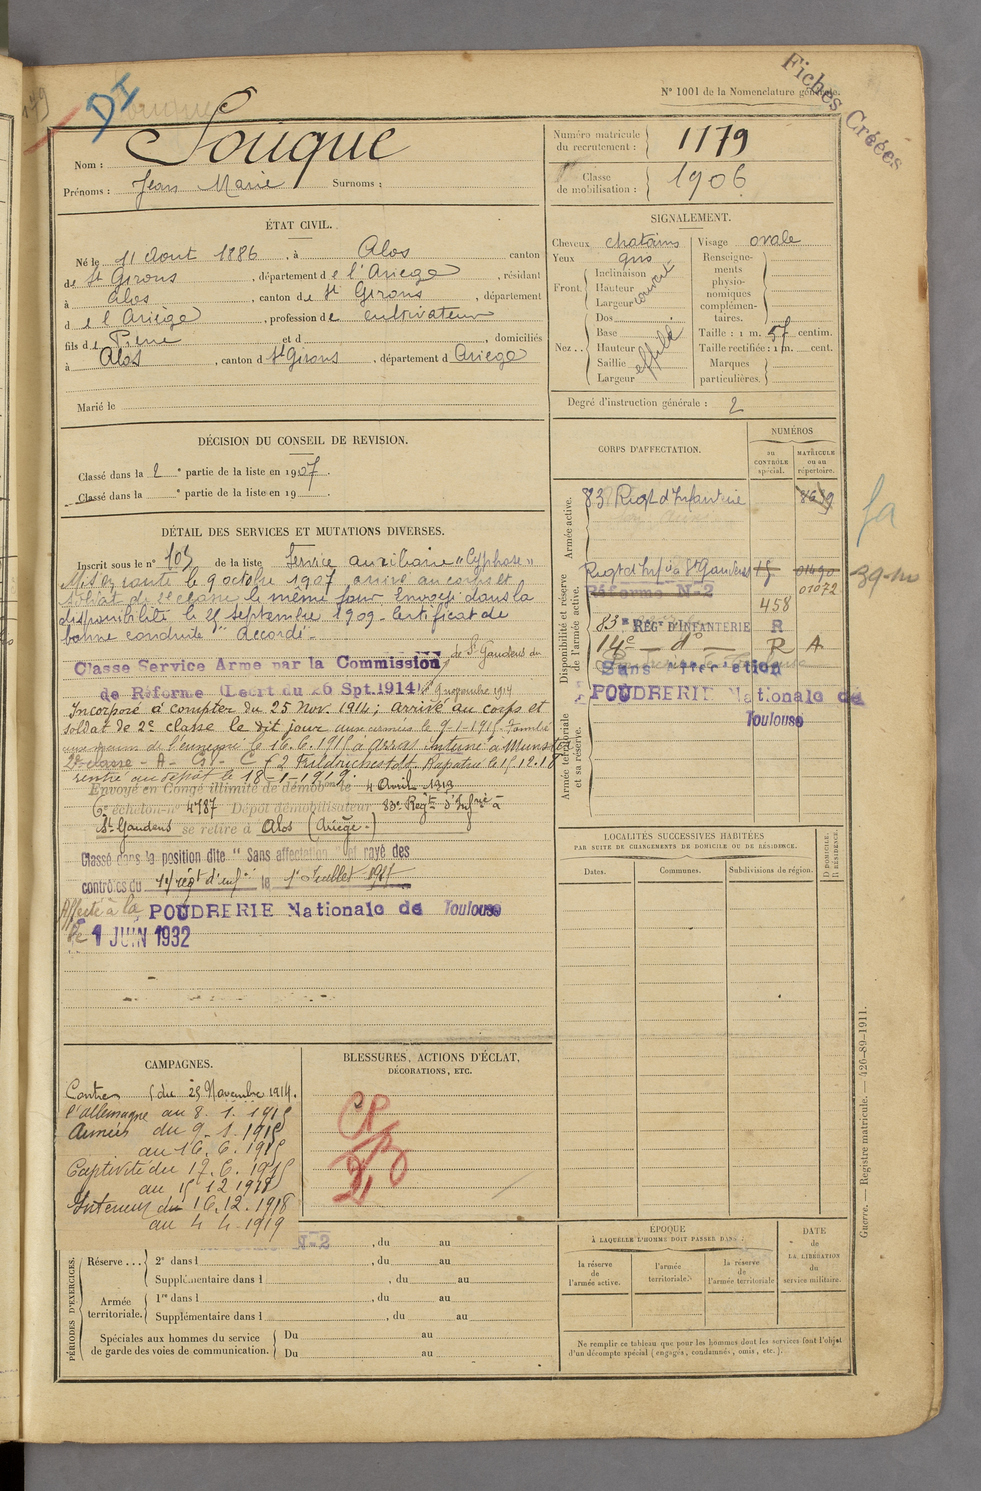 N° 1001 de la Nomenclature générale.
Fiches Créées
DI
Nom : Souque
Prénoms : Jean Marie Surnoms :
Numéro matricule du recrutement : 1179
Classe de mobilisation : 1906
ÉTAT CIVIL.
Né le 11 Aout 1886, à Alos canton
de St Girons, département de l'Ariege, résidant
à Alos, canton de St Girons, département
de l'Ariège, profession de cultivateur
fils de Pierre et d , domiciliés
à Alos, canton d St Girons, département d Ariege
Marié le
SIGNALEMENT.
Cheveux chatains Visage ovale
Yeux gris
Front. Inclinaison Hauteur Largeur couvert
Renseignements physionomiques complémentaires.
Nez .. Dos Base Hauteur Saillie Largeur effilé
Taille : 1 m. 57 centim.
Taille rectifiée : 1 m. cent.
Marques particulières.
Degré d'instruction générale : 2
DÉCISION DU CONSEIL DE REVISION.
Classé dans la 2e partie de la liste en 1907.
Classé dans la e partie de la liste en 19 .
DÉTAIL DES SERVICES ET MUTATIONS DIVERSES.
Inscrit sous le n° 103 de la liste Service auxiliaire "Cyphose"
Mis en route le 9 octobre 1907 arrivé au corps et
soldat de 2e classe le même jour Envoyé dans la
disponibilité le 25 septembre 1909. Certificat de
bonne conduite "Accordé"
Classe Service Armé par la Commission de St Gaudens du
de Réforme (Décrt du 26 Spt.1914) 9 novembre 1914
Incorporé à compter du 25 Nov. 1914; arrivé au corps et
soldat de 2e classe le dit jour aux armées le 9-1-1915. Tombé
aux mains de l'ennemi le 16.6.1915 à Arras Interné à Munster
Rapatrié le 15.12.18
rentré au dépôt le 18-1-1919.
Envoyé en Congé illimité de démobon le 4 Avril 1919
6e échelon n° 4787 Dépôt démobilisateur 83e Regt d'Infrie à
St Gaudens se retire à Alos (Ariège.)
Classé dans la position dite "Sans affectation" et rayé des
contrôles du 14e régt d'infie le 1er Juillet 1927
Affecté à la POUDRERIE Nationale de Toulouse
le 1 JUIN 1932
CORPS D'AFFECTATION.
NUMÉROS
au CONTRÔLE spécial.
MATRICULE ou au répertoire.
Armée active.
83 Regt d'Infanterie 8659
Disponibilité et réserve de l'armée active.
Regt d'Infie à St Gaudens 15 01490
Réforme N-2 01072
458
83e RÉGt D'INFANTERIE R
14e — do — R A
Sans affectation
POUDRERIE Nationale de
Toulouse
Armée territoriale et sa réserve.
LOCALITÉS SUCCESSIVES HABITÉES
PAR SUITE DE CHANGEMENTS DE DOMICILE OU DE RÉSIDENCE.
D. DOMICILE. R. RÉSIDENCE.
Dates. Communes. Subdivisions de région.
CAMPAGNES.
Contre l'Allemagne du 25 Novembre 1914.
au 8. 1. 1915
Armées du 9. 1. 1915
au 16. 6. 1915
Captivité du 17. 6. 1915
au 15 12 1918
Intérieur du 16.12.1918
au 4 4 1919
BLESSURES, ACTIONS D'ÉCLAT,
DÉCORATIONS, ETC.
PÉRIODES D'EXERCICES.
N-2 , du au
Réserve ... 2e dans l , du au
Supplémentaire dans l , du au
Armée territoriale. 1re dans l , du au
Supplémentaire dans l , du au
Spéciales aux hommes du service de garde des voies de communication. Du au
Du au
EPOQUE
À LAQUELLE L'HOMME DOIT PASSER DANS :
la réserve de l'armée active.
l'armée territoriale.
la réserve de l'armée territoriale
DATE de LA LIBÉRATION du service militaire.
Ne remplir ce tableau que pour les hommes dont les services font l'objet
d'un décompte spécial (engagés, condamnés, omis, etc.).
Guerre. — Registre matricule. — 426-89-1911.